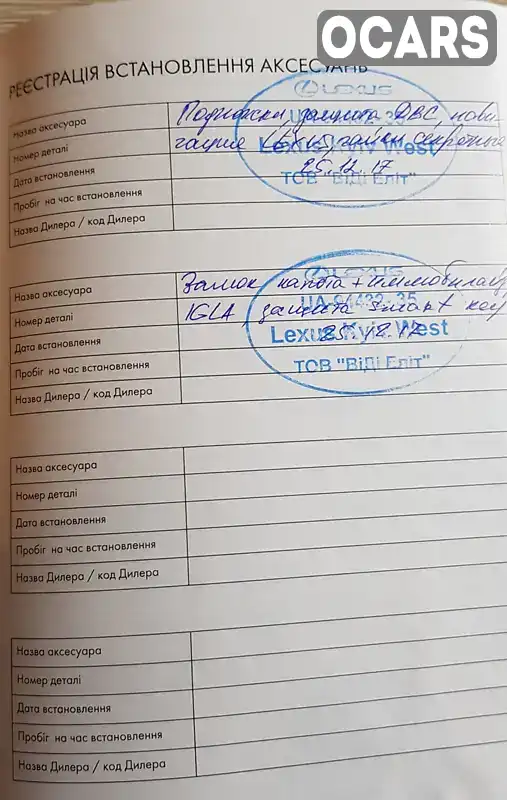 OCARS
РЕЄСТРАЦІЯ ВСТАНОВЛЕННЯ АКСЕСУАРІВ
Назва аксесуара
Номер деталі
Дата встановлення
Пробіг на час встановлення
Назва Дилера / код Дилера
защита ДВС, нави
гайки секретные
25.12.17
LEXUS
Lexus Kyiv West
ТОВ "ВІДІ Еліт"
Назва аксесуара
Номер деталі
Дата встановлення
Пробіг на час встановлення
Назва Дилера / код Дилера
Замок капота + иммобилайз
IGLA, защита smart key
25.12.17
LEXUS
Lexus Kyiv West
ТОВ "ВІДІ Еліт"
Назва аксесуара
Номер деталі
Дата встановлення
Пробіг на час встановлення
Назва Дилера / код Дилера
Назва аксесуара
Номер деталі
Дата встановлення
Пробіг на час встановлення
Назва Дилера / код Дилера